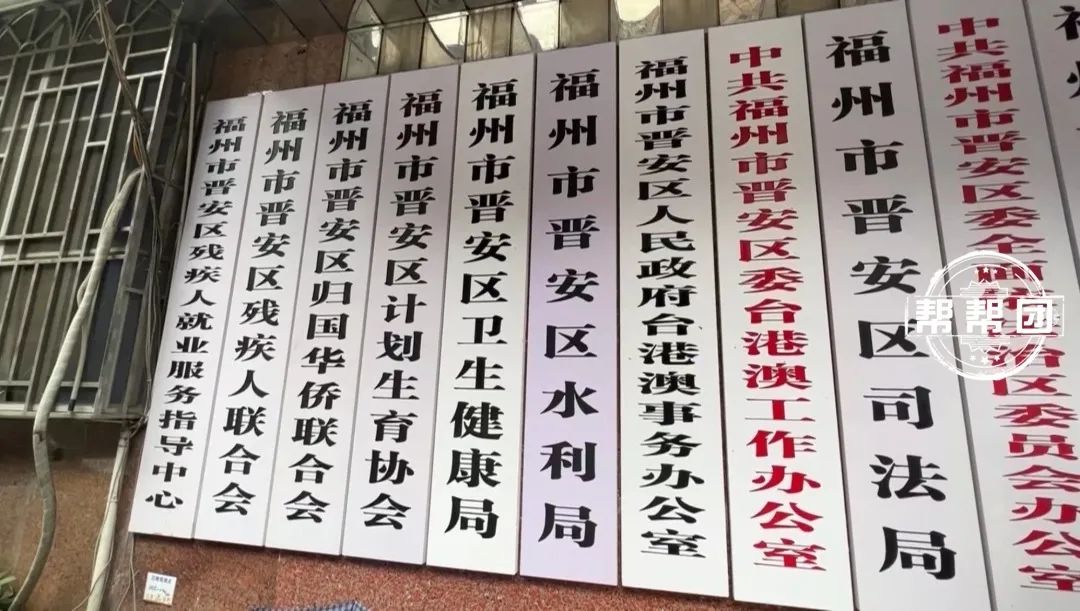 福州市晋安区残疾人就业服务指导中心
福州市晋安区残疾人联合会
福州市晋安区归国华侨联合会
福州市晋安区计划生育协会
福州市晋安区卫生健康局
福州市晋安区水利局
福州市晋安区人民政府台港澳事务办公室
中共福州市晋安区委台港澳工作办公室
福州市晋安区司法局
中共福州市晋安区委全面依法治区委员会办公室
福州
帮帮团